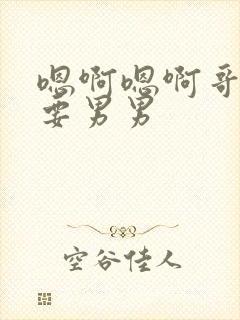 嗯啊嗯啊哥
要男男
空谷佳人